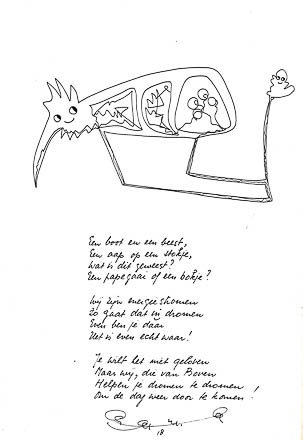 Een boot en een beest,
Een aap op een stokje,
Wat is dit geweest?
Een papegaai of een bokje?
Wij zijn energiestromen
Zo gaat dat in dromen
Even ben je daar
Het is even echt waar!
Je wilt het niet geloven
Maar wij, die van Boven
Helpen je dromen te dromen!
Om de dag weer door te komen!
18